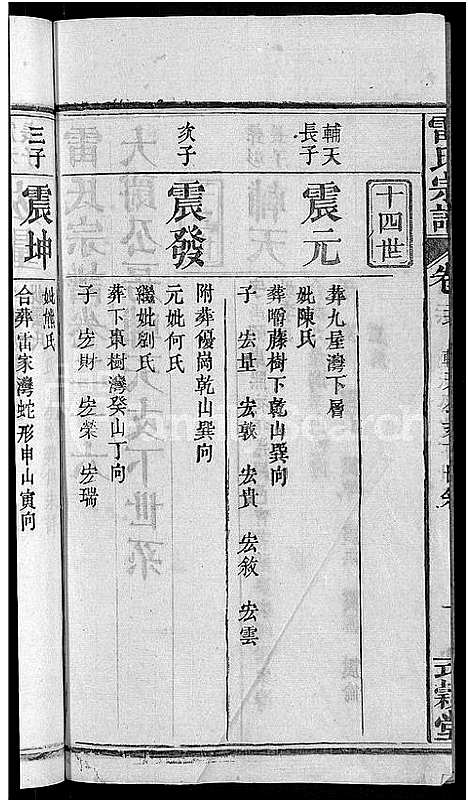 雷氏宗譜
卷
式穀堂
十四世
輔天
長子
震元
葬九屋灣下層
妣陳氏
葬嚼藤樹下乾山巽向
子 宏量 宏敦 宏貴 宏敘 宏雲
次子
震發
附葬優崗乾山巽向
元妣何氏
繼妣劉氏
葬下棗樹灣癸山丁向
子 宏財 宏榮 宏瑞
三子
震坤
妣熊氏
合葬雷家灣蛇形申山寅向